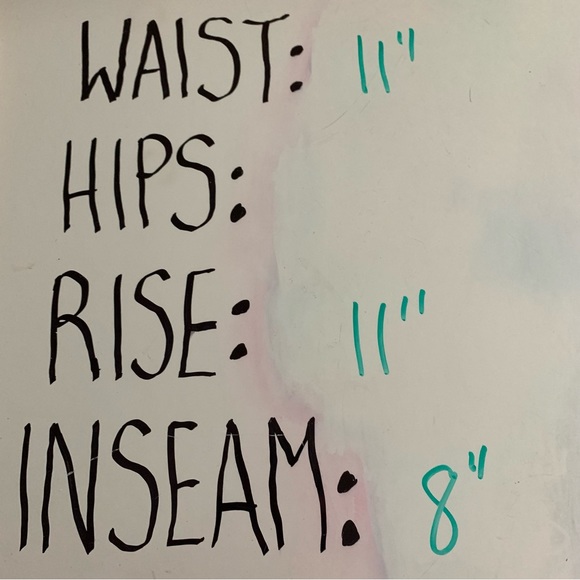 WAIST: 11"
HIPS:
RISE: 11"
INSEAM: 8"